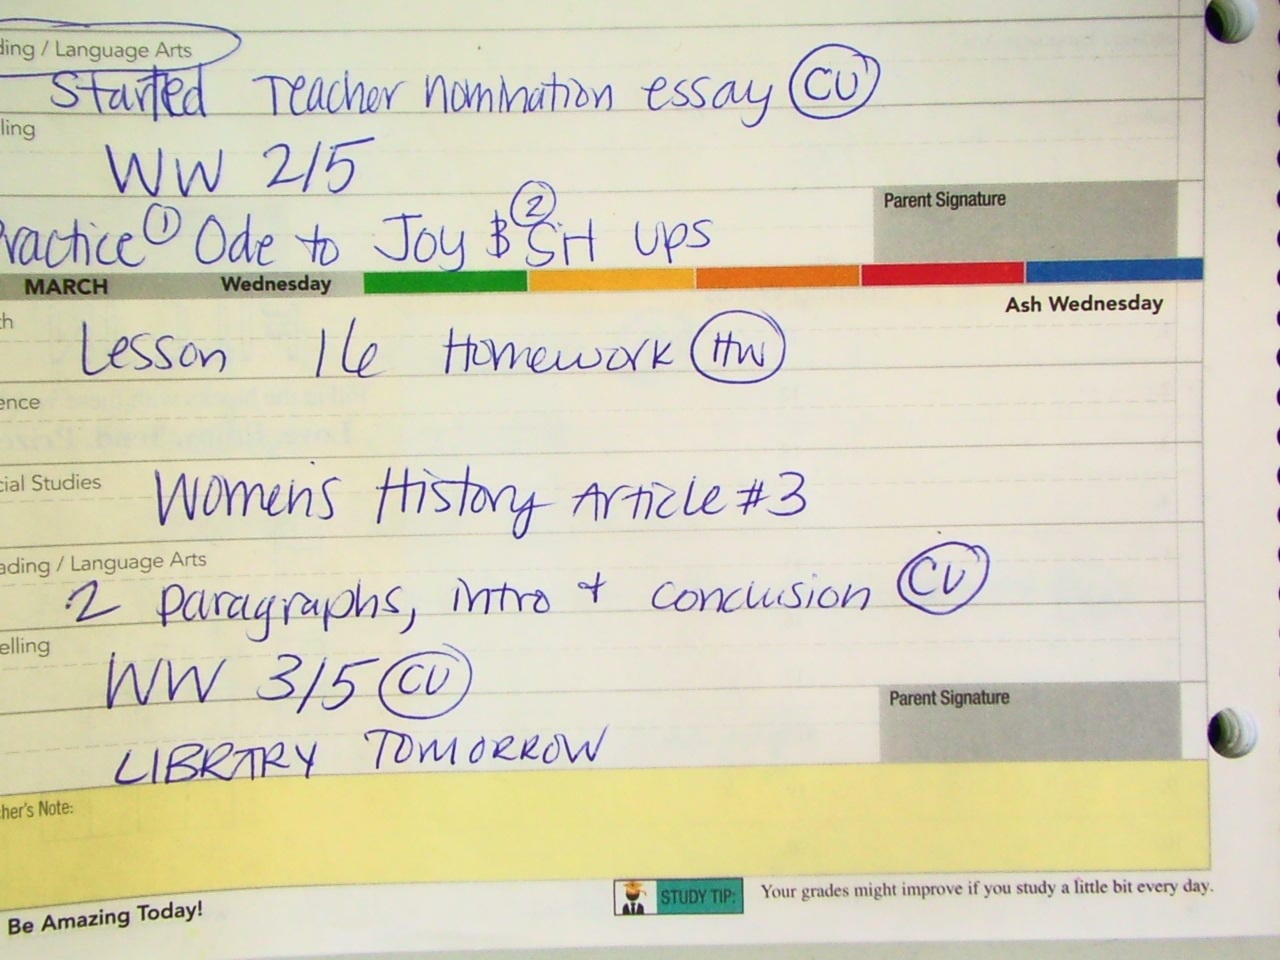 ding / Language Arts
Started Teacher nomination essay CU
ling
WW 2/5
Practice ① Ode to Joy & ② SH ups
Parent Signature
MARCH Wednesday
Ash Wednesday
th
Lesson 16 Homework HW
ence
cial Studies
Women's History Article #3
ading / Language Arts
2 paragraphs, intro + conclusion CU
elling
WW 3/5 CU
Parent Signature
LIBRARY TOMORROW
cher's Note:
Be Amazing Today!
STUDY TIP: Your grades might improve if you study a little bit every day.